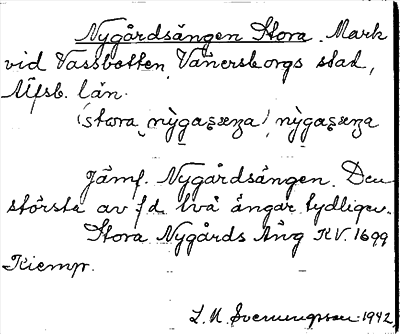 Nygårdsängen Stora. Mark
vid Vassbotten, Vänersborgs stad,
Älfsb. län.
(stora nỳgaʂæŋa) nỳgaʂæŋa
Jämf. Nygårdsängen. Den
största av fd två ängar tydligen.
Stora Nygårds Äng KV. 1699
Kiempr.
1942